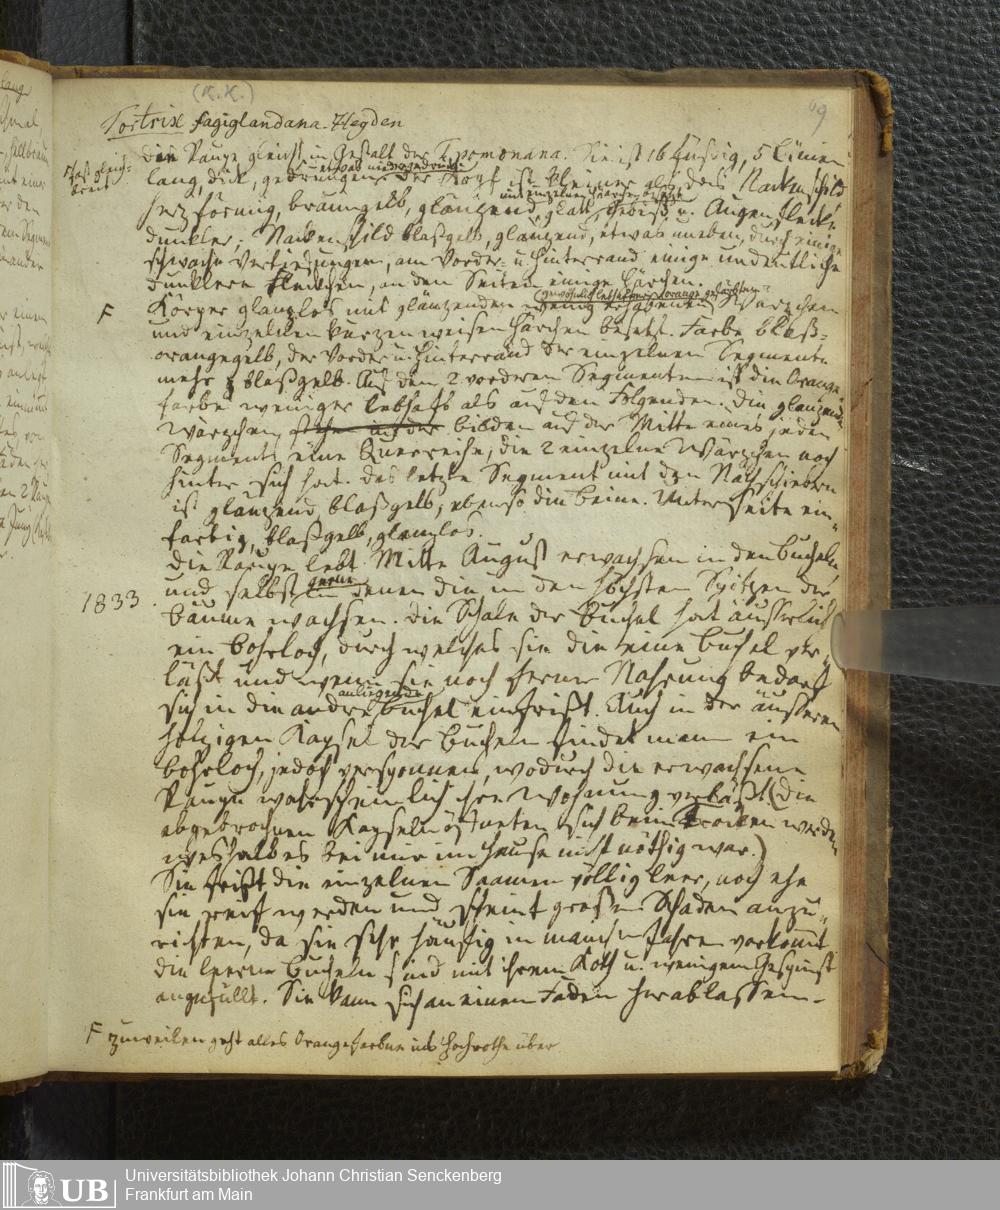 (K. K.)
69
Tortrix fagiglandana. Heyden
die Raupe gleicht in Gestalt der T. pomonana. Sie ist 16 füssig, 5 Linien
fast gleich-
breit
lang, dick, gedrungen etwas niedergedrückt. Der Kopf ist kleiner als das Nackenschild
herzförmig, braungelb, glänzend, glatt, Gebiß u. Augenflecke
dunkler; Nackenschild blaßgelb, glänzend, etwas uneben, durch einige
schwache Vertiefungen, am Vorder- u. Hinterrand einige undeutliche
dunklere Fleckchen, an den Seiten einige Härchen.
F
Körper glanzlos mit glänzenden wenig erhabenen Wärzchen
und einzelnen kurzen weisen Härchen besetzt. Farbe blaß-
orangegelb, der Vorder u. Hinterrand der einzelnen Segmente
mehr blaßgelb. Auf den 2 vorderen Segmenten ist die Orange-
farbe weniger lebhaft als auf den Folgenden. Die glänzenden
Wärzchen bilden auf der Mitte eines jeden
Segments eine Querreihe, die 2 einzelne Wärzchen noch
hinter sich hat. Das letzte Segment mit den Nachschiebern
ist glänzend, blaßgelb, ebenso die Beine. Unterseite ein-
farbig, blaßgelb, glanzlos.
Die Raupe lebt Mitte August erwachsen in den Bucheln
1833
und selbst gerne in denen die in den höchsten Spitzen der
Bäume wachsen. Die Schale der Buchel hat äusserlich
ein Bohrloch, durch welches sie die eine Buchel ver-
läßt und wenn sie noch ferner Nahrung bedarf
sich in die andre anliegende Buchel einfrißt. Auch in der äusseren
holzigen Kapsel der Bucheln findet man ein
Bohrloch, jedoch versponnen, wodurch die erwachsene
Raupe wahrscheinlich ihre Wohnung verläßt (Die
abgebrochnen Kapseln öffneten sich beim trocken werden
weshalb es bei mir im Hause nicht nöthig war.)
Sie frißt die einzelnen Saamen völlig leer, noch ehe
sie reif werden und scheint großen Schaden anzu-
richten, da sie sehr häufig in manchen Jahren vorkommt
die leeren Bucheln sind mit ihrem Koth u. wenigem Gespinst
angefüllt. Sie kann sich an einem Faden herablassen.
F zuweilen geht alles Orangefarbene ins Hochrothe über
UB
Universitätsbibliothek Johann Christian Senckenberg
Frankfurt am Main